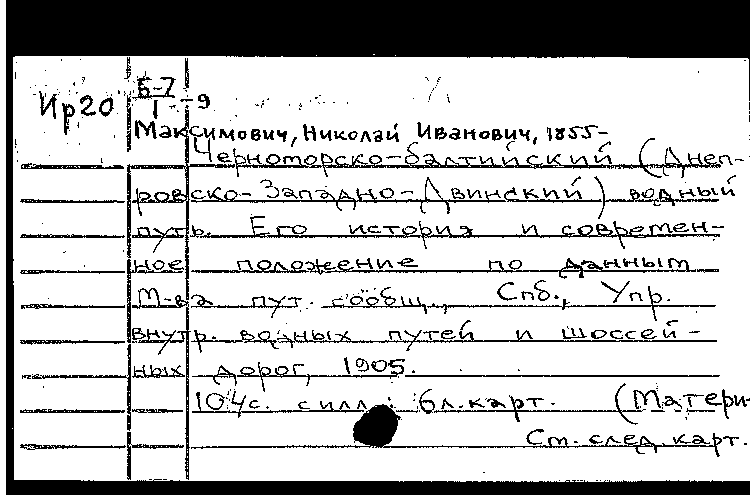 Ир20
Б-7
1 -9
Максимович, Николай Иванович, 1855-
Черноморско-балтийский (Днеп-
ровско-Западно-Двинский) водный
путь. Его история и современ-
ное положение по данным
М-ва пут. сообщ., Спб., Упр.
внутр. водных путей и шоссей-
ных дорог, 1905.
104с. с илл.; 6л.карт. (Матери-
См. след. карт.